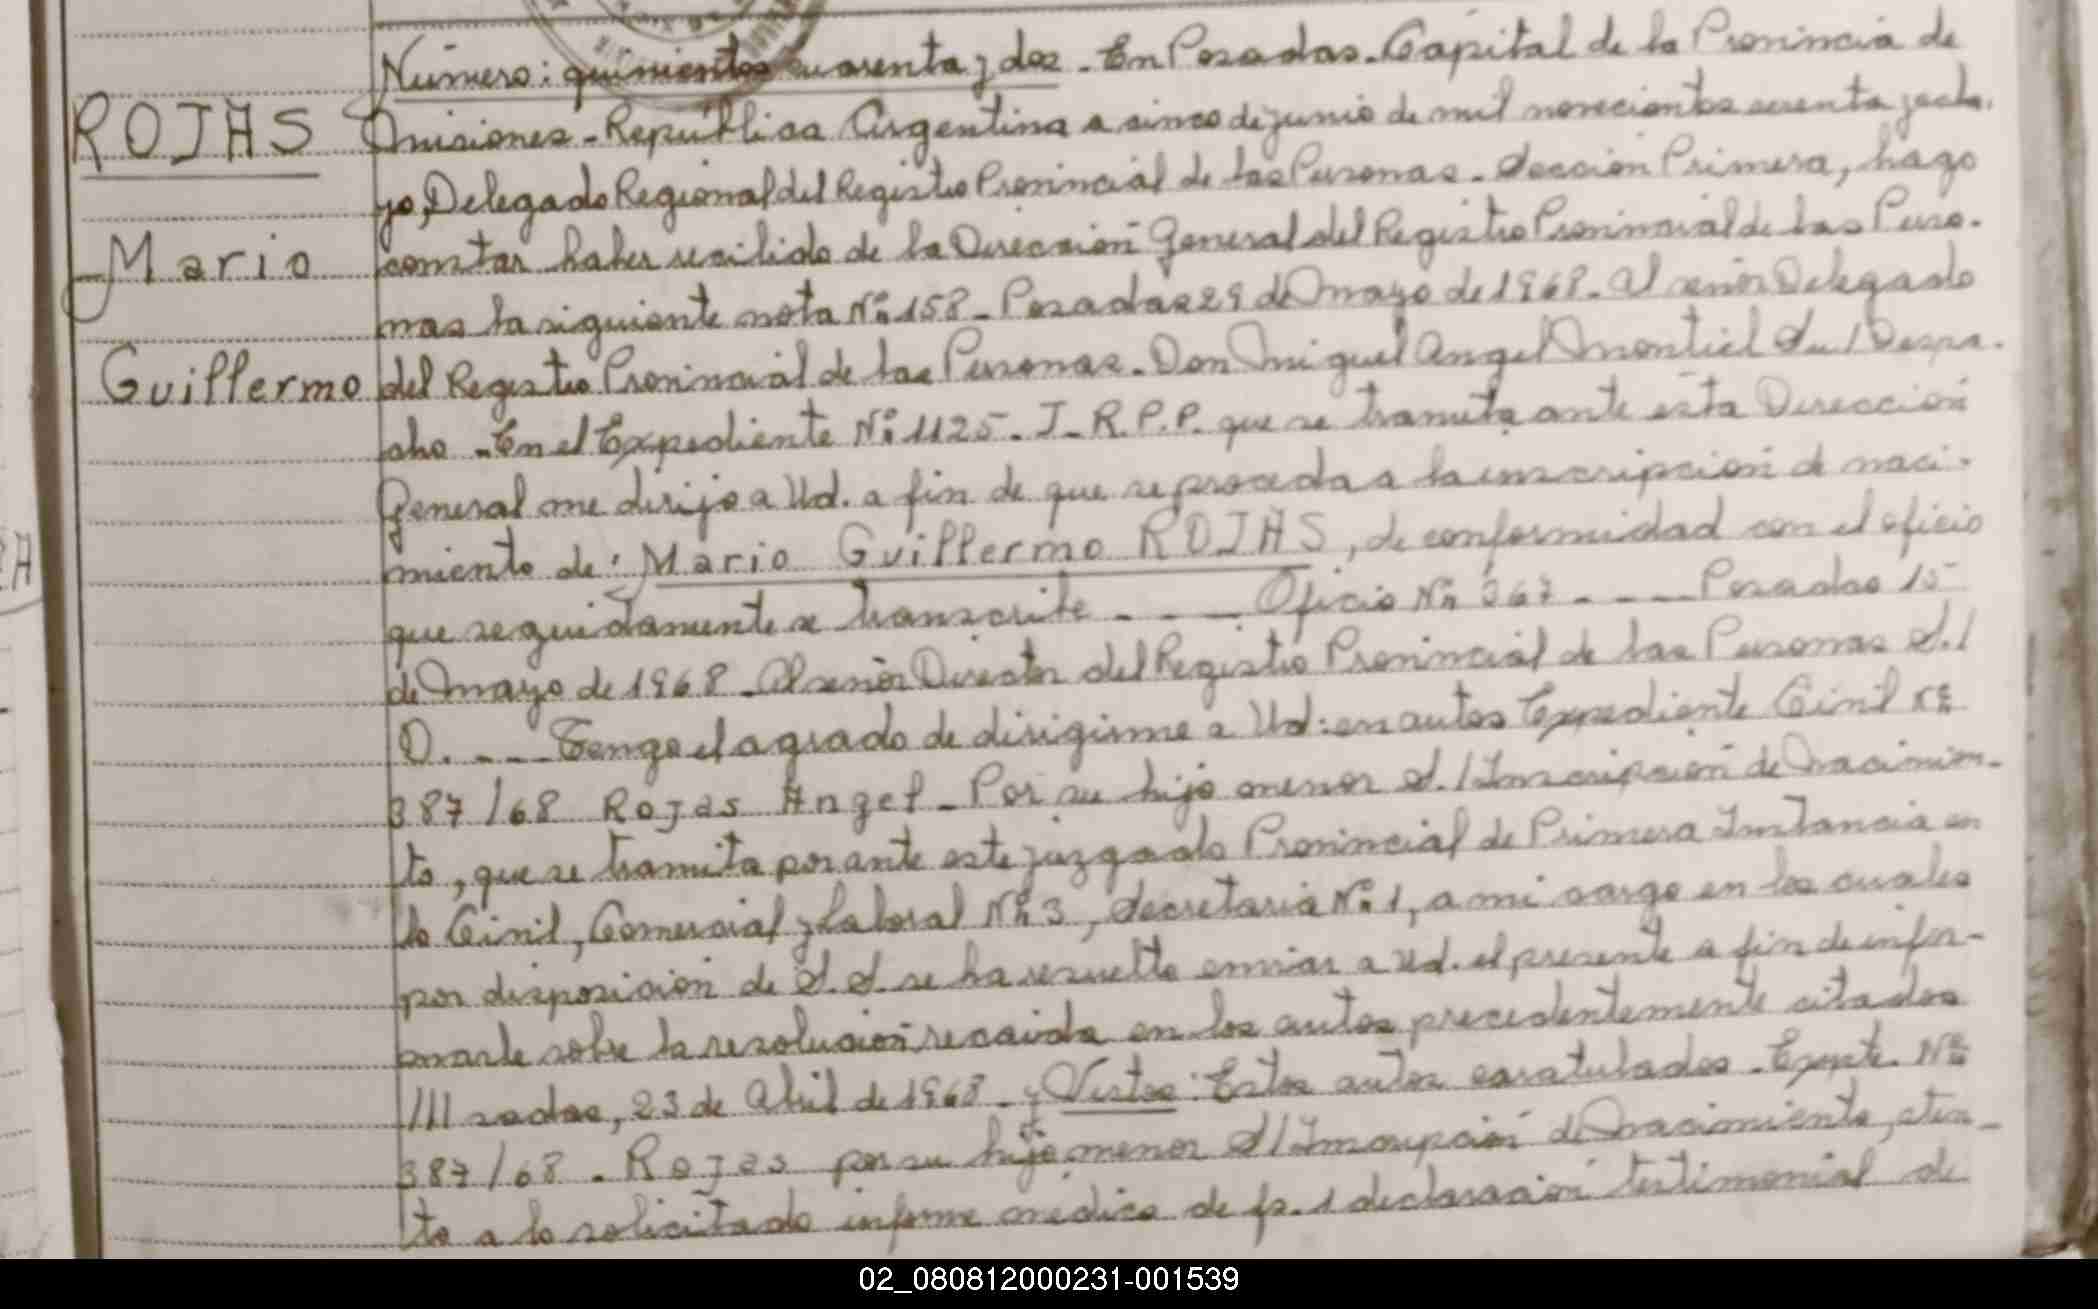 Número: quinientos cuarenta y dos. En Posadas. Capital de la Provincia de
ROJAS
Misiones - República Argentina a cinco de junio de mil novecientos sesenta y ocho.
yo, Delegado Regional del Registro Provincial de las Personas. Sección Primera, hago
Mario
constar haber recibido de la Dirección General del Registro Provincial de las Perso-
nas la siguiente nota Nº 158 - Posadas 29 de mayo de 1968. Al señor Delegado
Guillermo
del Registro Provincial de las Personas. Don Miguel Angel Montiel Su / Despa-
cho - En el Expediente Nº 1125 - J - R.P.P. que se tramita ante esta Dirección
General me dirijo a Ud. a fin de que se proceda a la inscripción de naci-
miento de: Mario Guillermo ROJAS, de conformidad con el oficio
que seguidamente se transcribe - - - - Oficio Nº 367 - - - - Posadas 15
de mayo de 1968 - Al señor Director del Registro Provincial de las Personas S./
D. - - - Tengo el agrado de dirigirme a Ud: en autos Expediente Civil Nº
387/68 Rojas Angel - Por su hijo menor S./ Inscripción de Nacimien-
to, que se tramita por ante este juzgado Provincial de Primera Instancia en
lo Civil, Comercial y Laboral Nº 3, Secretaria Nº 1, a mi cargo en los cuales
por disposición de S.S. se ha resuelto enviar a Ud. el presente a fin de infor-
marle sobre la resolución recaida en los autos precedentemente citados
///sadas, 23 de Abril de 1968 - y Vistos: Estos autos caratulados - Expte. Nº
387/68 - Rojas por su hijo menor S/ Inscripción de Nacimiento, aten-
to a lo solicitado informe médico de fs. 1 declaración testimonial de
02_080812000231-001539